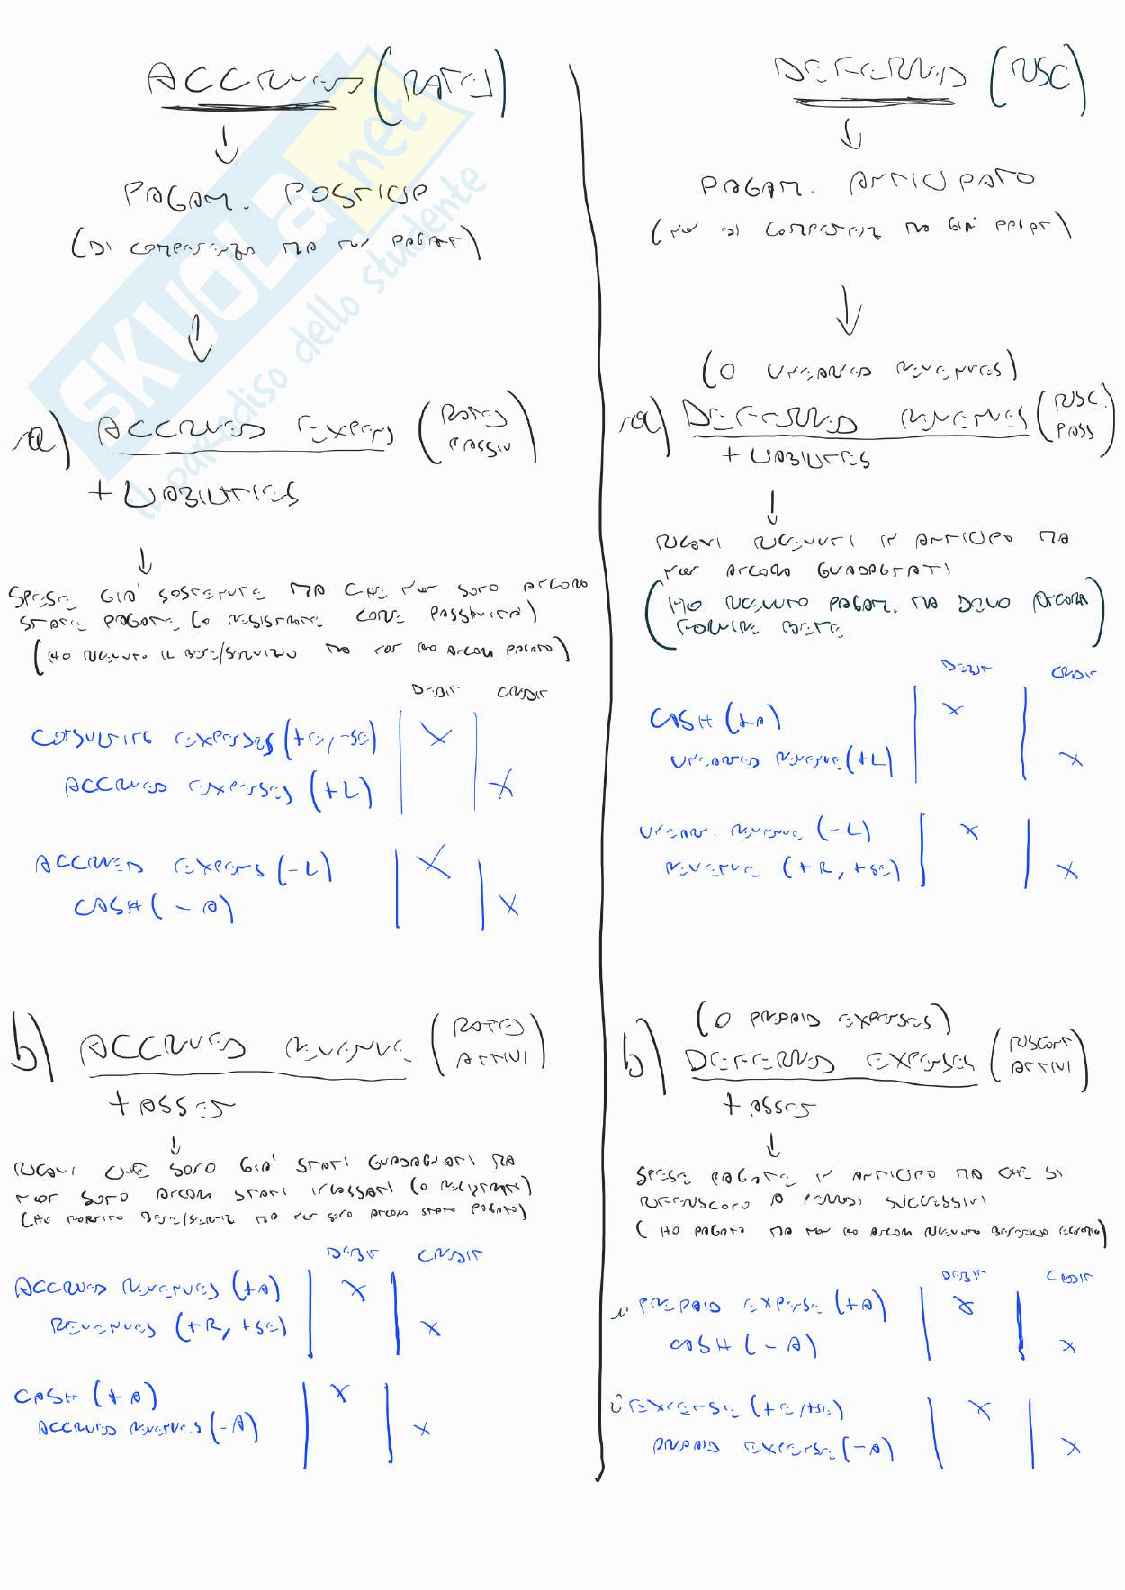 ACCRUED (RATEI)
PAGAM. POSTICIP
(DI COMPETENZA MA NON PAGAT)
a) ACCRUED EXPENS (RATEI PASSIVI)
+ LIABILITIES
SPESE GIÀ SOSTENUTE MA CHE NON SONO ANCORA
STATE PAGATE (O REGISTRATE COME PASSIVITÀ)
(HO RICEVUTO IL BENE/SERVIZIO MA NON HO ANCORA PAGATO)
DEBIT CREDIT
CONSULTING EXPENSES (+E, -SE) X
ACCRUED EXPENSES (+L) X
ACCRUED EXPENS (-L) X
CASH (-A) X
b) ACCRUED REVENUE (RATEI ATTIVI)
+ ASSET
RICAVI CHE SONO GIÀ STATI GUADAGNATI MA
NON SONO ANCORA STATI INCASSATI (O REGISTRATI)
(HO FORNITO BENE/SERVIZ MA NON SONO ANCORA STATO PAGATO)
DEBIT CREDIT
ACCRUED REVENUES (+A) X
REVENUES (+R, +SE) X
CASH (+A) X
ACCRUED REVENUES (-A) X
DEFERRED (RISC)
PAGAM. ANTICIPATO
(NON DI COMPETENZ MA GIÀ PAGAT)
(O UNEARNED REVENUES)
a) DEFERRED REVENUES (RISC. PASS)
+ LIABILITIES
RICAVI RICEVUTI IN ANTICIPO MA
NON ANCORA GUADAGNATI
(HO RICEVUTO PAGAM. MA DEVO ANCORA
FORNIRE BENE
DEBIT CREDIT
CASH (+A) X
UNEARNED REVENUE (+L) X
UNEAR. REVENUE (-L) X
REVENUE (+R, +SE) X
(O PREPAID EXPENSES)
b) DEFERRED EXPENSES (RISCONT ATTIVI)
+ ASSET
SPESE PAGATE IN ANTICIPO MA CHE SI
RIFERISCONO A PERIODI SUCCESSIVI
(HO PAGATO MA NON HO ANCORA RICEVUTO BENEFICIO ECONOMICO)
DEBIT CREDIT
PREPAID EXPENSE (+A) X
CASH (-A) X
EXPENSE (+E, +SE) X
PREPAID EXPENSE (-A) X
SKUOLA.net
il paradiso dello studente